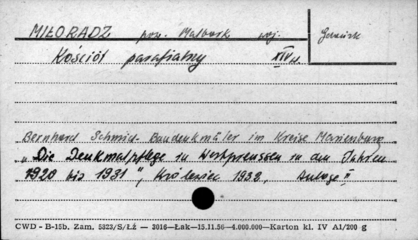 MIŁORADZ pow. Malbork woj. Gdańsk
Kościół parafialny XIV w.
Bernhard Schmid- Baudenkmäler im Kreise Marienburg
„Die Denkmalpflege in Westpreussen in den Jahren
1920 bis 1931", Królewiec 1932, Anlage II
CWD - B-15b. Zam. 5823/S/Łź — 3016—Łak—15.11.56—4.000.000—Karton kl. IV A1/200 g